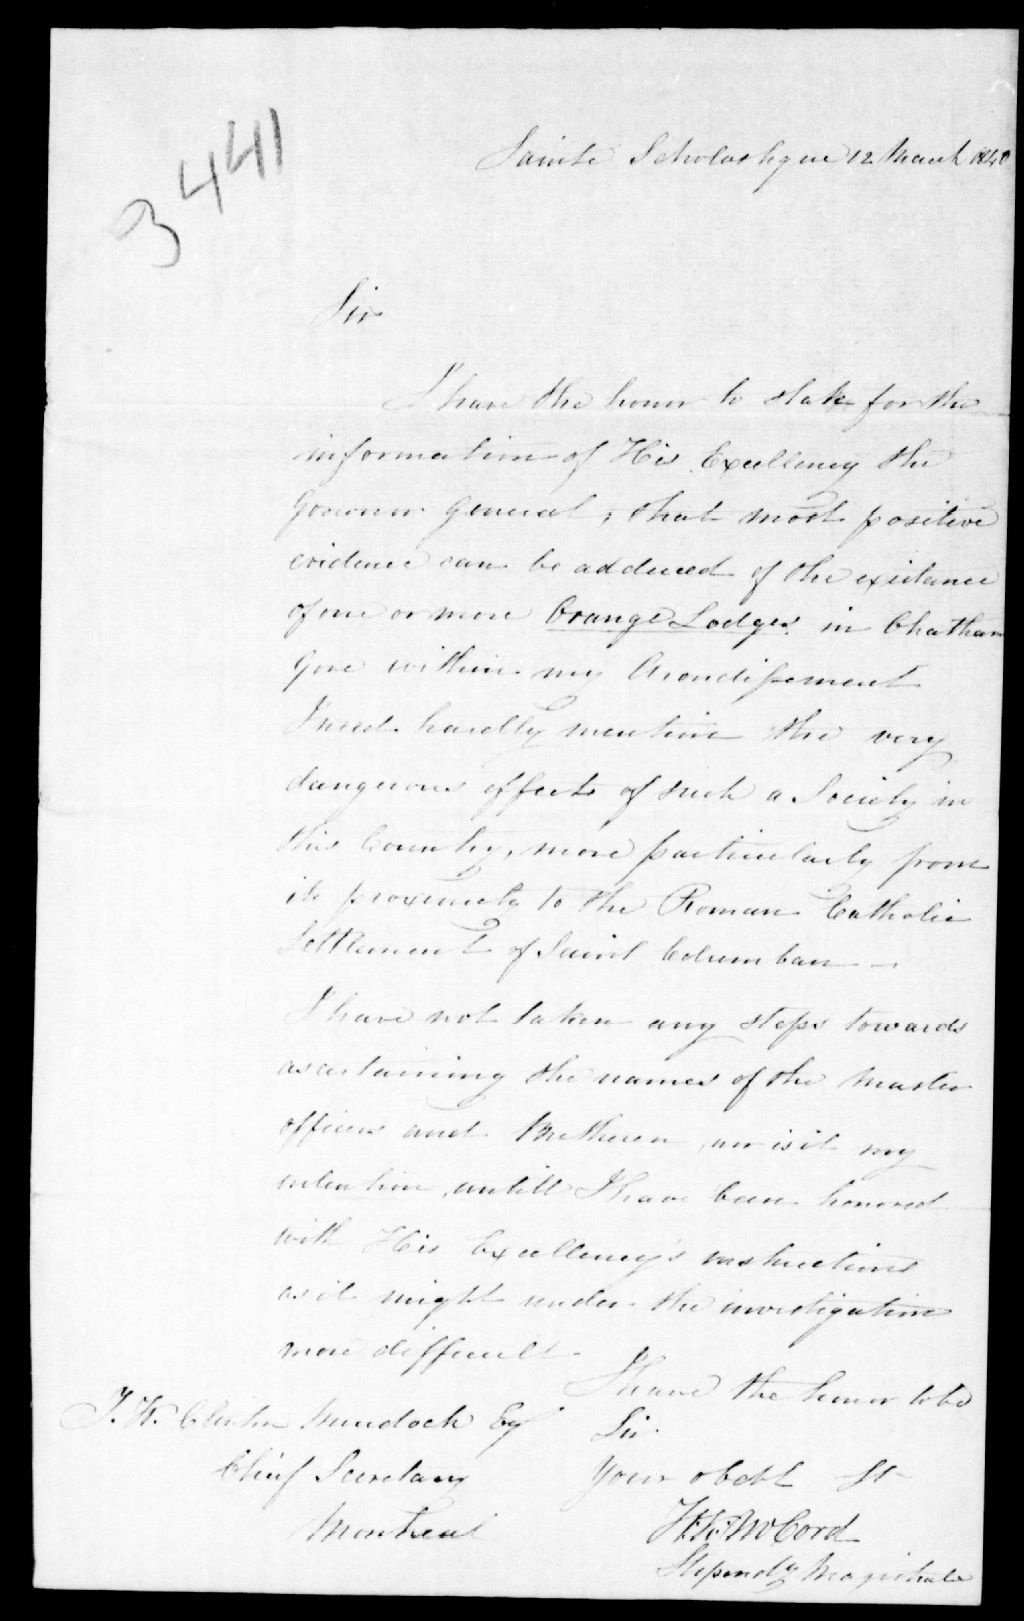 3441
Sainte Scholastique 12 March 1840
Sir
I have the honor to state for the
information of His Excellency the
Governor General, that most positive
evidence can be adduced of the existance
of one or more Orange Lodges in Chatham
Gore within my Arondissement
I need hardly mention the very
dangerous effects of such a Society in
this Country, more particularly from
its proximity to the Roman Catholic
Settlement of Saint Columban —
I have not taken any steps towards
ascertaining the names of the Master
officers and Bretheren, nor is it my
intention, untill I have been honored
with His Excellency's instructions
as it might render the investigation
more difficult
I have the honor to be
Sir
Your obedt St
McCord
Stipendy Magistrate
T. W. Clinton Murdoch Esq
Chief Secretary
Montreal